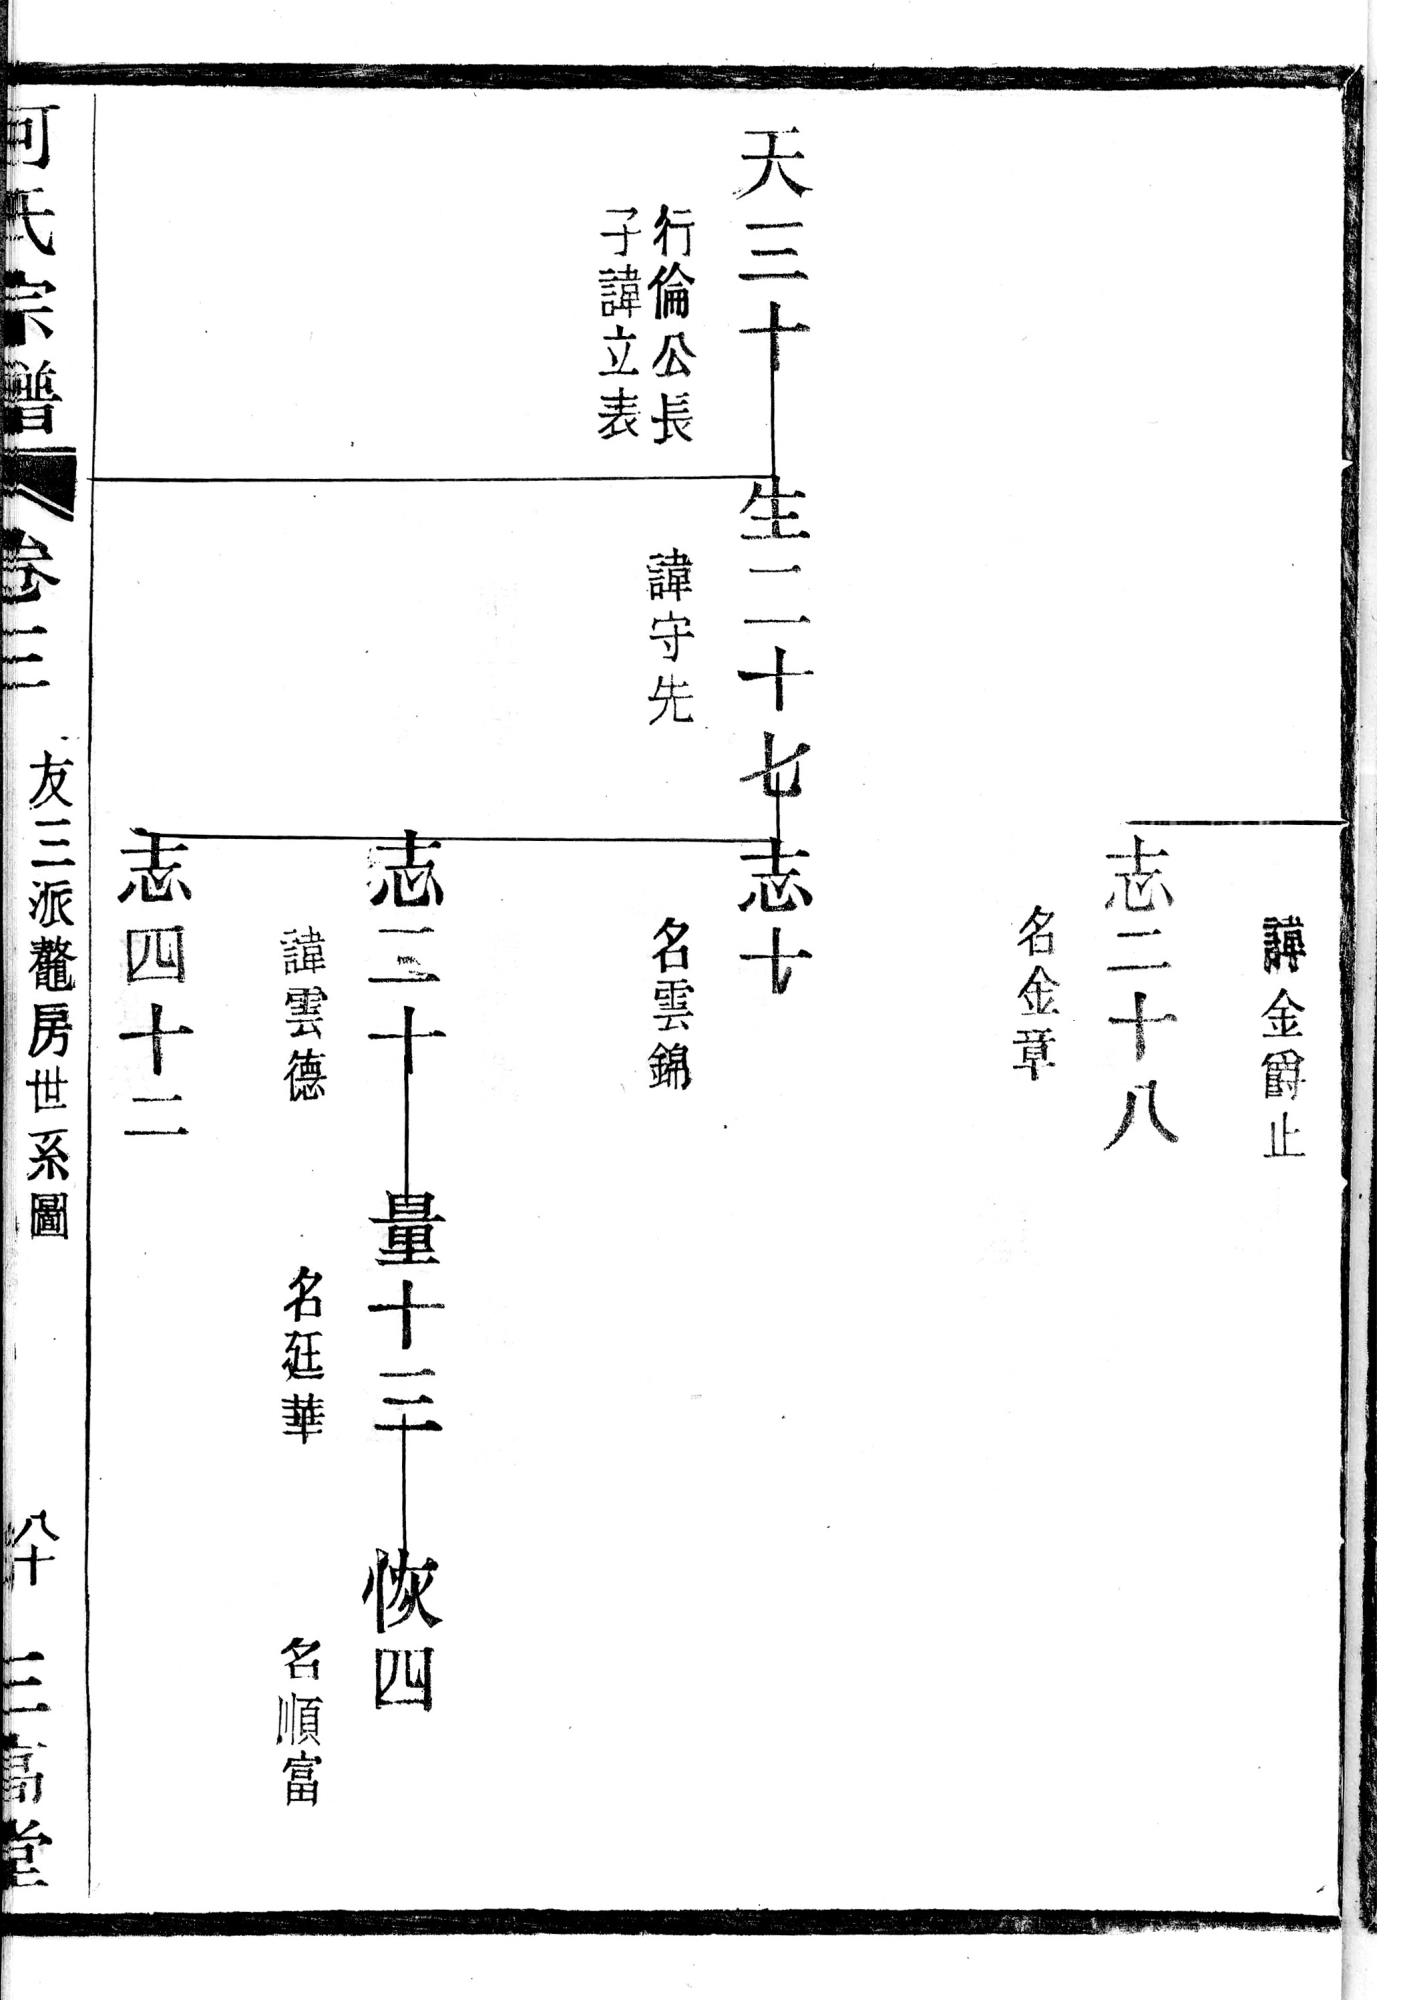 諱金爵止
志二十八
名金章
天三十
行倫公長
子諱立表
生二十七
諱守先
志十
名雲錦
志三十
諱雲德
量十三
名廷華
恢四
名順富
志四十二
何氏宗譜
卷三
友三派鼇房世系圖
八十
三高堂